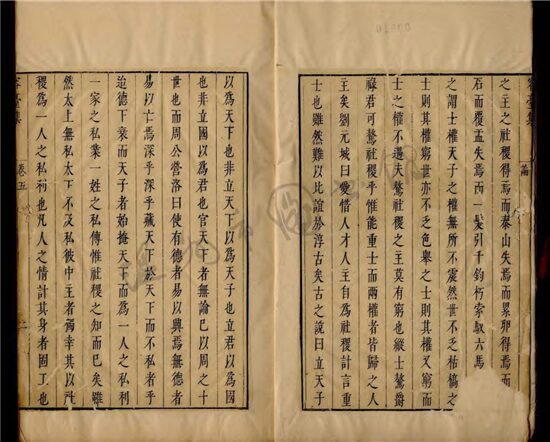 之主之社稷得焉而泰山失焉而累卵得焉而
石而覆盂失焉而一髮引千鈞朽索馭六馬
之謂士權天子之權無所不震然世不乏枯槁之
士則其權窮世亦不乏色舉之士則其權又窮而
士之權不遇夫鰲社稷之主莫有窮也縱士鰲爵
祿君可鰲社稷乎惟能重士而兩權者皆歸之人
主矣劉元城曰愛惜人才人主自為社稷計言重
士也雖然難以比誼於淳古矣古之說曰立天子
以為天下也非立天下以為天子也立君以為國
也非立國以為君也官天下者無論已以周之十
世也而周公營洛曰使有德者易以興焉無德者
易以亡焉深乎深乎藏天下於天下而不私者乎
迨德下衰而天子者始掩天下而為一人之私利
一家之私業一姓之私傳惟社稷之知而已矣雖
然太上無私太下不及私彼中主者獨幸其以
稷為一人之私利也凡人之情計其身者固工也
容臺集
卷五
二
論